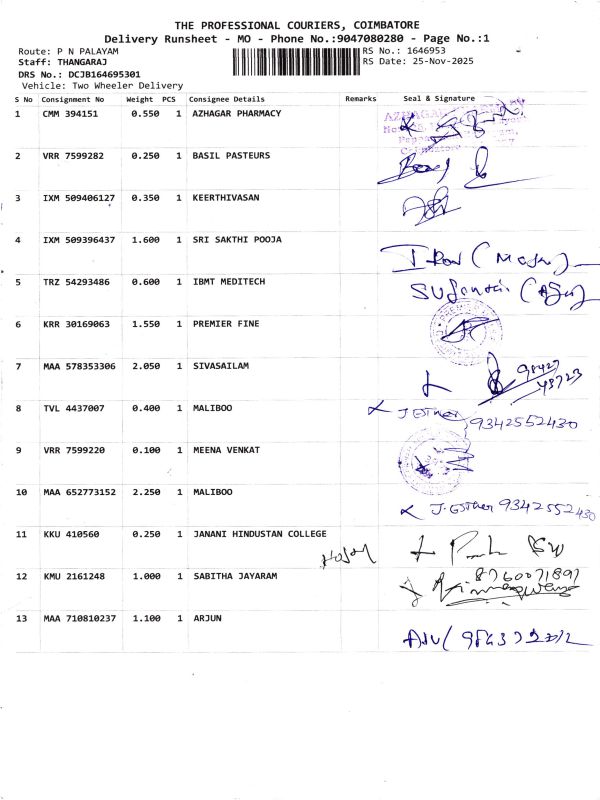 THE PROFESSIONAL COURIERS, COIMBATORE
Delivery Runsheet - MO - Phone No.:9047080280 - Page No.:1
Route: P N PALAYAM
RS No.: 1646953
Staff: THANGARAJ
RS Date: 25-Nov-2025
DRS No.: DCJB164695301
Vehicle: Two Wheeler Delivery
S No Consignment No Weight PCS Consignee Details Remarks Seal & Signature
1 CMM 394151 0.550 1 AZHAGAR PHARMACY
2 VRR 7599282 0.250 1 BASIL PASTEURS
3 IXM 509406127 0.350 1 KEERTHIVASAN
4 IXM 509396437 1.600 1 SRI SAKTHI POOJA
5 TRZ 54293486 0.600 1 IBMT MEDITECH
6 KRR 30169063 1.550 1 PREMIER FINE
7 MAA 578353306 2.050 1 SIVASAILAM 98427 48723
8 TVL 4437007 0.400 1 MALIBOO J Esther 9342552430
9 VRR 7599220 0.100 1 MEENA VENKAT
10 MAA 652773152 2.250 1 MALIBOO J. Esther 9342552430
11 KKU 410560 0.250 1 JANANI HINDUSTAN COLLEGE
12 KMU 2161248 1.000 1 SABITHA JAYARAM 8760071897
13 MAA 710810237 1.100 1 ARJUN